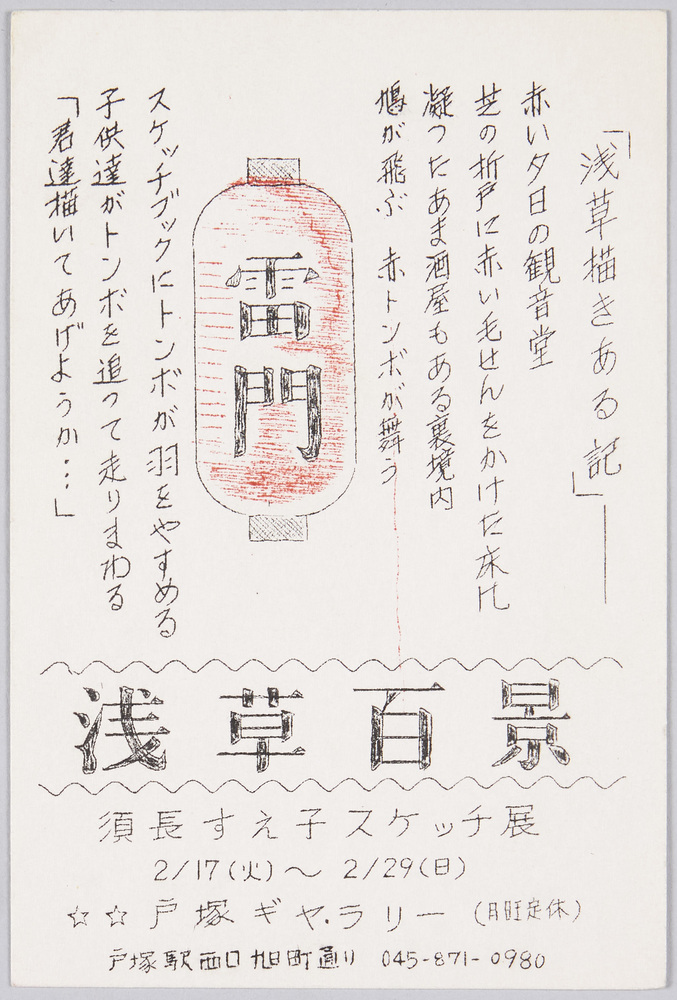 「浅草描きある記」
赤い夕日の観音堂
芝の折戸に赤い毛せんをかけた床几
凝ったあま酒屋もある裏境内
鳩が飛ぶ 赤トンボが舞う
雷門
スケッチブックにトンボが羽をやすめる
子供達がトンボを追って走りまわる
「君達描いてあげようか…」
浅草百景
須長すえ子スケッチ展
2/17(火)～2/29(日)
☆☆戸塚ギャラリー(月旺定休)
戸塚駅西口旭町通り 045-871-0980